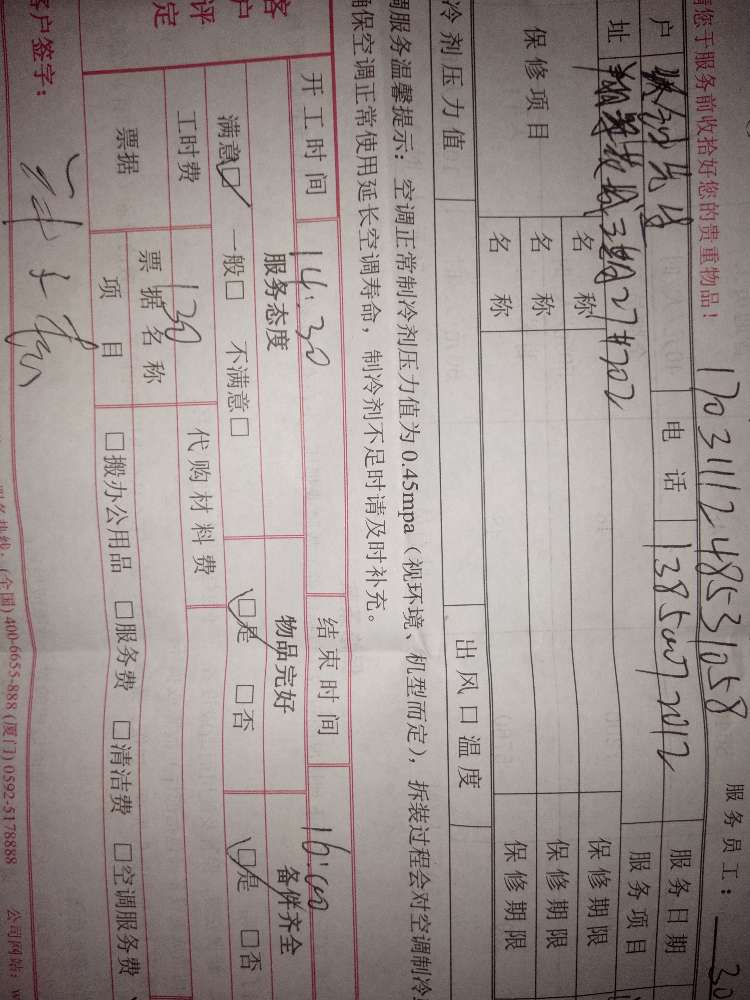 请您于服务前收拾好您的贵重物品！ 服务员工：
17031112 48531058
户 先生 电话 13850072012 服务日期
址 三期27#702 服务项目
保修项目 名称 保修期限
名称 保修期限
名称 保修期限
冷剂压力值 出风口温度
调服务温馨提示：空调正常制冷剂压力值为0.45mpa（视环境、机型而定），拆装过程会对空调制冷
确保空调正常使用延长空调寿命，制冷剂不足时请及时补充。
开工时间 14:30 结束时间 16:00
客户评定 服务态度 物品完好 备件齐全
满意☑ 一般□ 不满意□ ☑是 □否 ☑是 □否
工时费 130 代购材料费
票据 票据名称
项目 □搬办公用品 □服务费 □清洁费 □空调服务费
客户签字：
服务热线：(全国) 400-6655-888 (厦门) 0592-5178888 公司网站：w